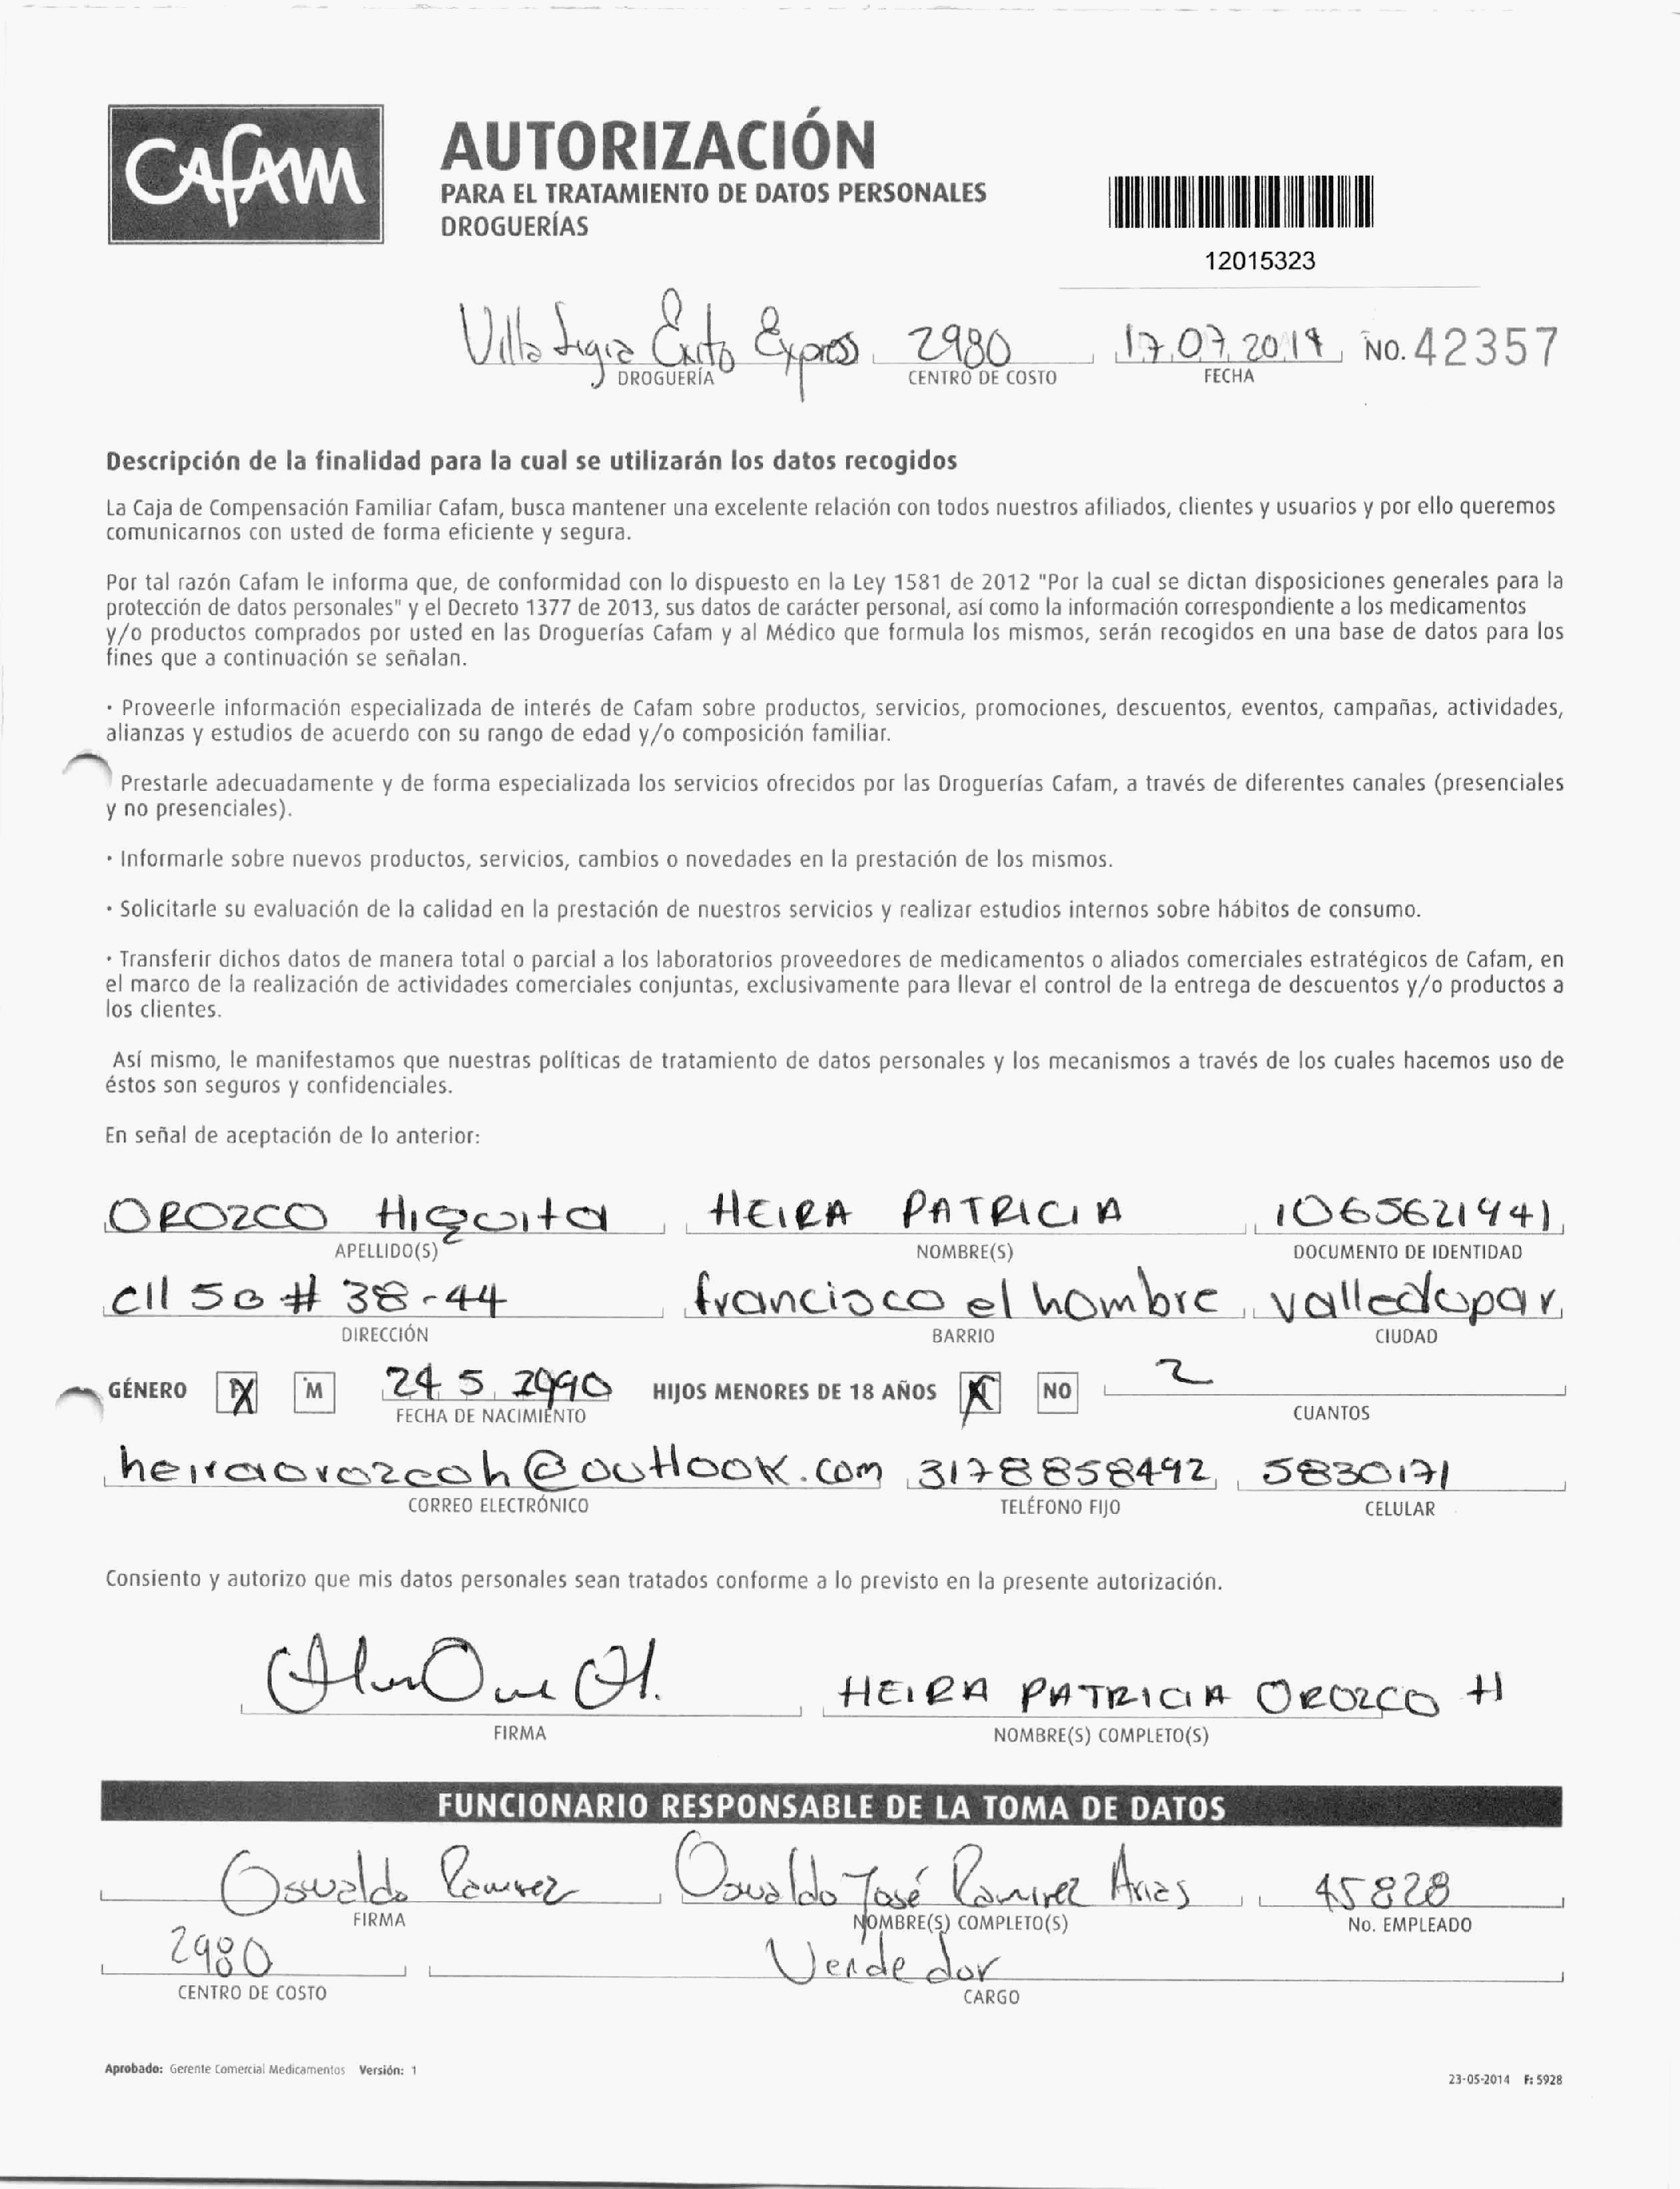 Cafam
AUTORIZACIÓN
PARA EL TRATAMIENTO DE DATOS PERSONALES
DROGUERÍAS
12015323
Villa Ligia Éxito Express 2980 17.07.2019 No. 42357
DROGUERÍA CENTRO DE COSTO FECHA
Descripción de la finalidad para la cual se utilizarán los datos recogidos
La Caja de Compensación Familiar Cafam, busca mantener una excelente relación con todos nuestros afiliados, clientes y usuarios y por ello queremos
comunicarnos con usted de forma eficiente y segura.
Por tal razón Cafam le informa que, de conformidad con lo dispuesto en la Ley 1581 de 2012 "Por la cual se dictan disposiciones generales para la
protección de datos personales" y el Decreto 1377 de 2013, sus datos de carácter personal, así como la información correspondiente a los medicamentos
y/o productos comprados por usted en las Droguerías Cafam y al Médico que formula los mismos, serán recogidos en una base de datos para los
fines que a continuación se señalan.
· Proveerle información especializada de interés de Cafam sobre productos, servicios, promociones, descuentos, eventos, campañas, actividades,
alianzas y estudios de acuerdo con su rango de edad y/o composición familiar.
Prestarle adecuadamente y de forma especializada los servicios ofrecidos por las Droguerías Cafam, a través de diferentes canales (presenciales
y no presenciales).
· Informarle sobre nuevos productos, servicios, cambios o novedades en la prestación de los mismos.
· Solicitarle su evaluación de la calidad en la prestación de nuestros servicios y realizar estudios internos sobre hábitos de consumo.
· Transferir dichos datos de manera total o parcial a los laboratorios proveedores de medicamentos o aliados comerciales estratégicos de Cafam, en
el marco de la realización de actividades comerciales conjuntas, exclusivamente para llevar el control de la entrega de descuentos y/o productos a
los clientes.
Así mismo, le manifestamos que nuestras políticas de tratamiento de datos personales y los mecanismos a través de los cuales hacemos uso de
éstos son seguros y confidenciales.
En señal de aceptación de lo anterior:
OROZCO Higuita HEIRA PATRICIA 1065621941
APELLIDO(S) NOMBRE(S) DOCUMENTO DE IDENTIDAD
Cll 5B # 38-44 francisco el hombre valledupar
DIRECCIÓN BARRIO CIUDAD
GÉNERO F M 24 5 1990 HIJOS MENORES DE 18 AÑOS NO 2
FECHA DE NACIMIENTO CUANTOS
heiraorozcoh@outlook.com 3178858492 5830171
CORREO ELECTRÓNICO TELÉFONO FIJO CELULAR
Consiento y autorizo que mis datos personales sean tratados conforme a lo previsto en la presente autorización.
HEIRA PATRICIA OROZCO H
FIRMA NOMBRE(S) COMPLETO(S)
FUNCIONARIO RESPONSABLE DE LA TOMA DE DATOS
Oswaldo Ramirez Oswaldo José Ramirez Arias 45828
FIRMA NOMBRE(S) COMPLETO(S) No. EMPLEADO
2980 Vendedor
CENTRO DE COSTO CARGO
Aprobado: Gerente Comercial Medicamentos Versión: 1
23-05-2014 F: 5928